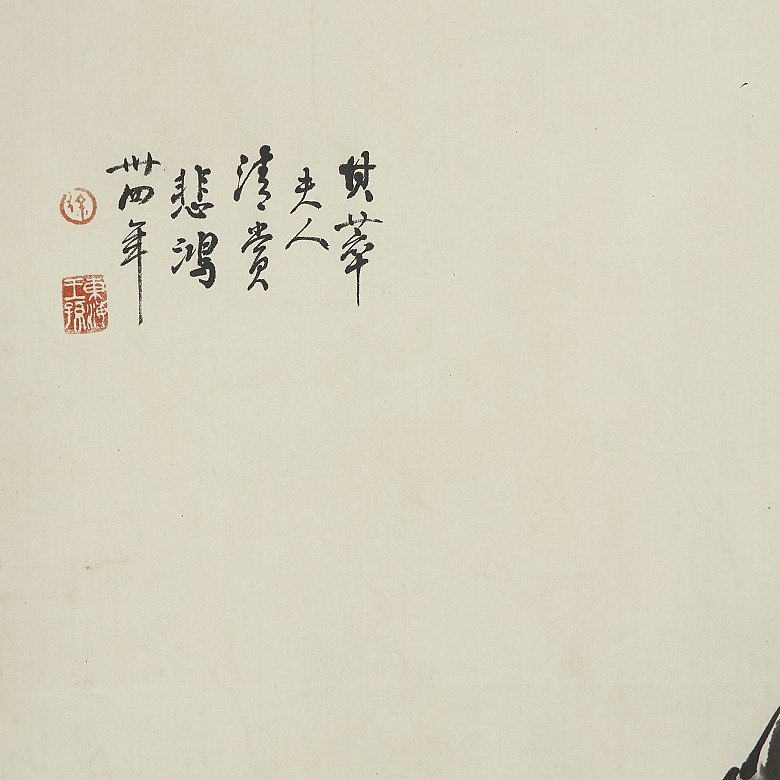 其華
夫人
清賞
悲鴻
卅四年
徐
東海王孫